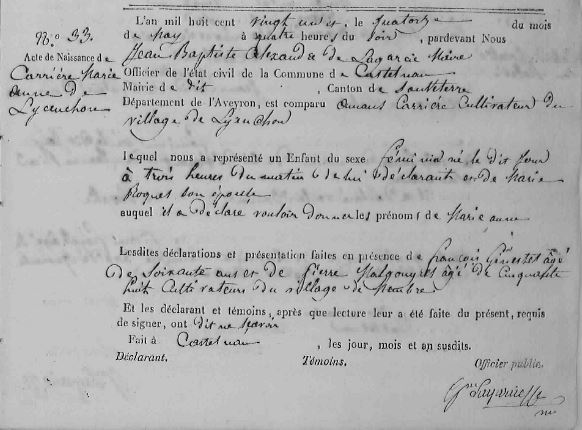 N.° 33.
Acte de Naissance de
Carrière Marie
anne de
Lyxuchou
L'an mil huit cent vingt un et, le quatorze du mois
de may à quatre heures du soir, pardevant Nous
Jean Baptiste Alexandre de Lagarde Maire
Officier de l'état civil de la Commune de Castelnau
Mairie de dit, Canton de Sauveterre
Département de l'Aveyron, est comparu Amans Carrière Cultivateur du
village de
lequel nous a représenté un Enfant du sexe féminin né le dit jour
à trois heures du matin de lui déclarant et de Marie
Roques son épouse
auquel il a déclaré vouloir donner les prénoms de Marie anne
Lesdites déclarations et présentation faites en présence de françois Ginestet âgé
de soixante ans et de Pierre âgé de Cinquante
huit Cultivateurs du village de
Et les déclarant et témoins, après que lecture leur a été faite du présent, requis
de signer, ont dit ne savoir
Fait à Castelnau, les jour, mois et an susdits.
Déclarant. Témoins. Officier public.